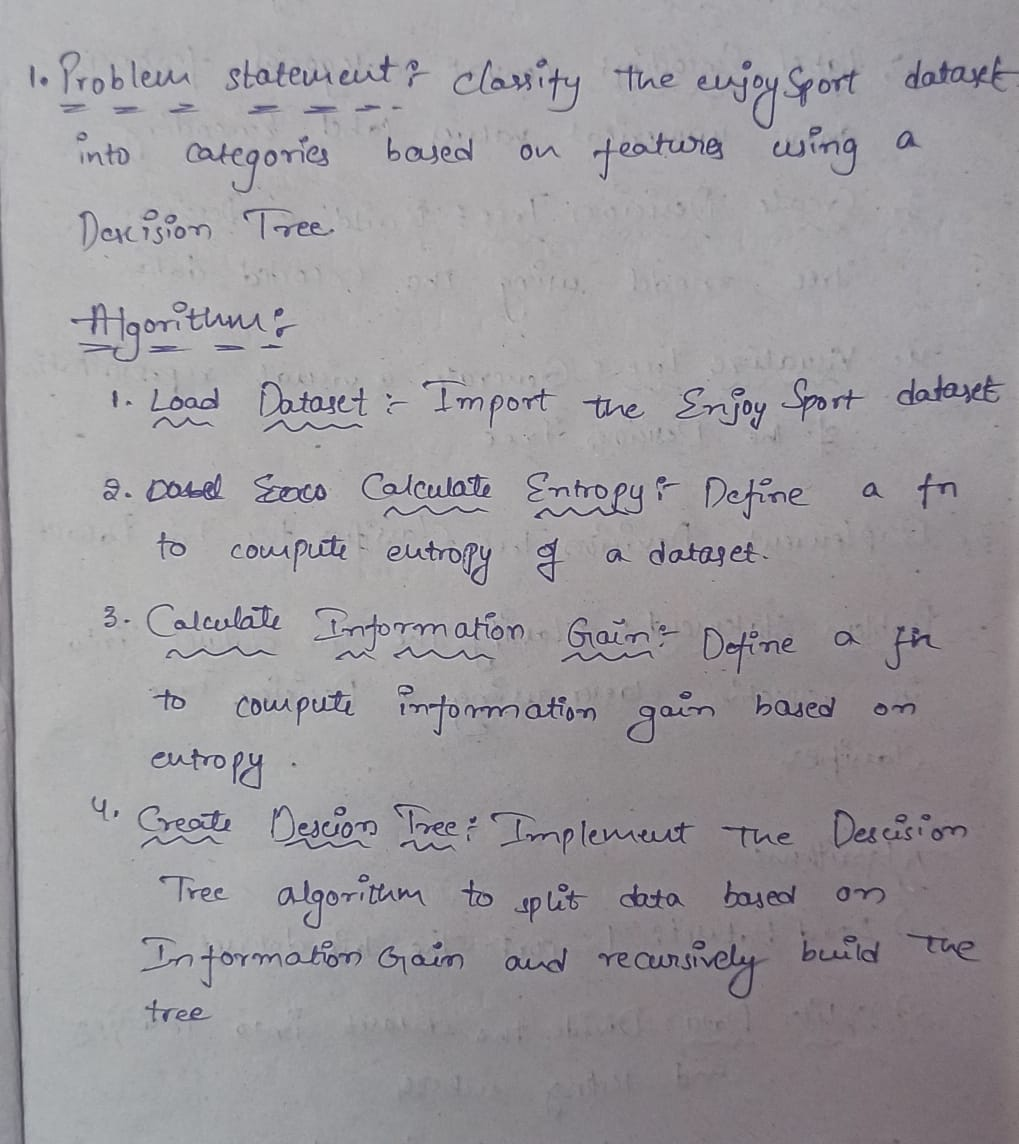 1. Problem statement :- Classify the enjoy Sport dataset
into categories based on features using a
Descision Tree.
Algorithm :-
1. Load Dataset :- Import the Enjoy Sport dataset
2. Calculate Entropy :- Define a fn
to compute entropy of a dataset.
3. Calculate Information Gain :- Define a fn
to compute information gain based on
entropy.
4. Create Descion Tree : Implement The Descision
Tree algorithm to split data based on
Information Gain and recursively build the
tree